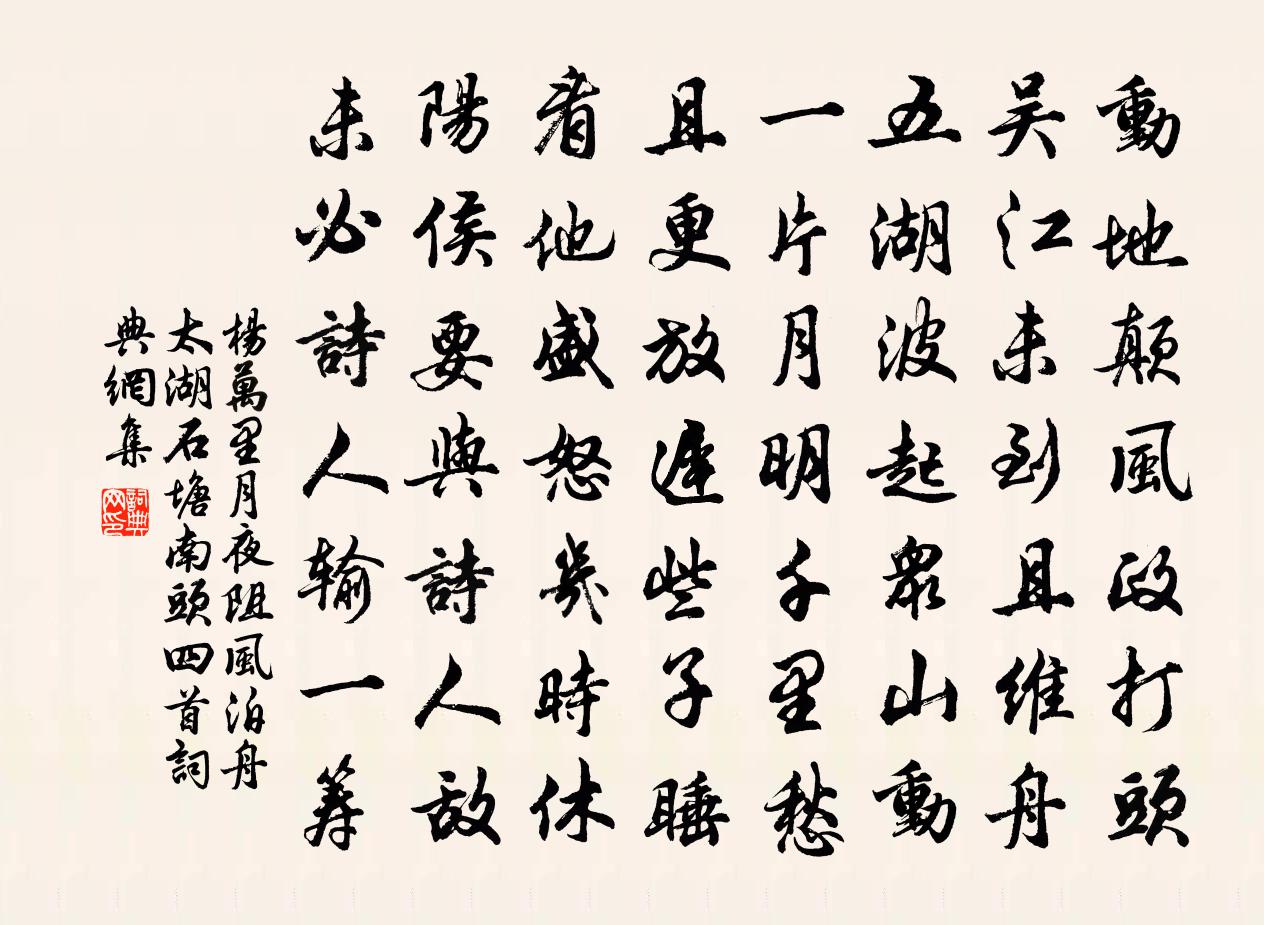 動地顛風政打頭
吴江未到且維舟
五湖波起衆山動
一片月明千里愁
且更放遲些子睡
看他盛怒幾時休
陽侯要與詩人敵
未必詩人输一筹
楊萬里月夜阻風泊舟
太湖石塘南頭四首詞
典網集
詞典
网印